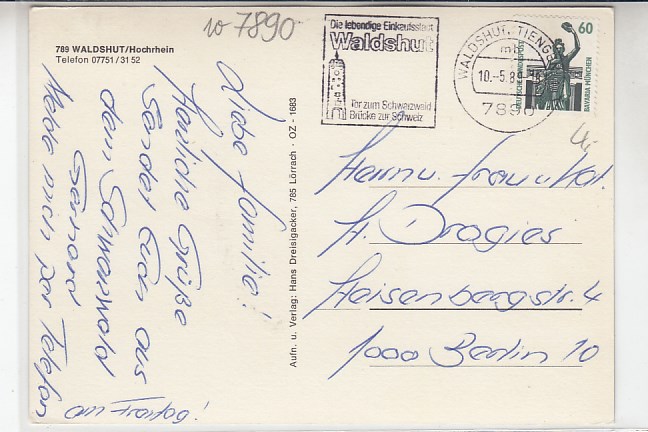 w 7890
789 WALDSHUT/Hochrhein
Telefon 07751/3152
Die lebendige Einkaufsstadt
Waldshut
Tor zum Schwarzwald
Brücke zur Schweiz
WALDSHUT-TIENGEN
mb
10.-5.8
7890
60
DEUTSCHE BUNDESPOST
BAVARIA MÜNCHEN
Liebe Familie!
Herzliche Grüße
sendet Euch aus
dem Schwarzwald
Gerhard
Melde mich per Telefon
am Freitag!
Aufn. u. Verlag: Hans Dreisigacker, 785 Lörrach · OZ - 1683
Herrn u. Frau
H. Drogies
Heisenbergstr. 4
1000 Berlin 10